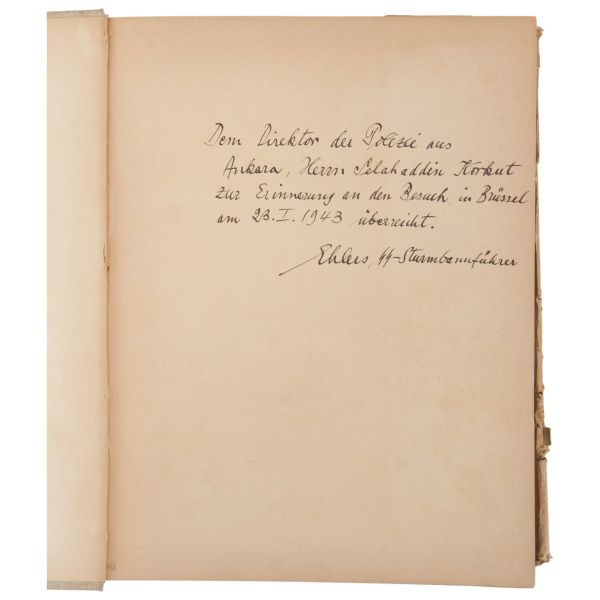 Dem Direktor der Polizei aus
Ankara, Herrn Selahaddin Korkut
zur Erinnerung an den Besuch in Brüssel
am 23.I.1943 überreicht.
Ehlers, SS-Sturmbannführer